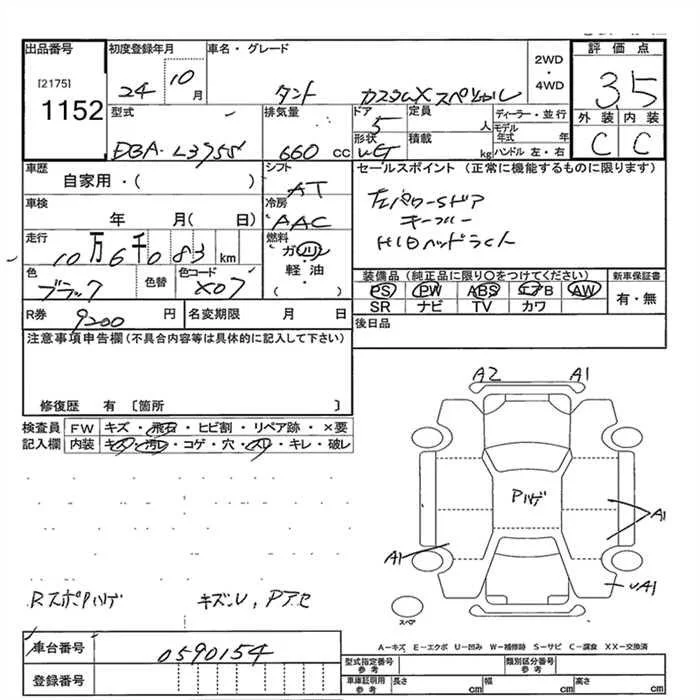 出品番号 初度登録年月 車名・グレード 2WD・4WD 評価点
[2175] 24 10月 タント カスタムX スペシャル 35
1152
型式 排気量 ドア 定員 ディーラー・並行 外装 内装
DBA-L375S 660cc 5 人 モデル年式 年 C C
形状 積載 kg ハンドル 左・右
車歴 シフト セールスポイント(正常に機能するものに限ります)
自家用・( ) AT 左パワーSドア
車検 冷房 キーフリー
年 月( 日) AAC HIDヘッドライト
走行 燃料
10万6千083km ガソリン
軽・油
( )
色 色替 色コード 装備品(純正品に限り○をつけてください) 新車保証書
ブラック X07 PS PW ABS エアB AW 有・無
SR ナビ TV カワ
R券 9200円 名変期限 月 日 後日品
注意事項申告欄(不具合内容等は具体的に記入して下さい)
修復歴 有[箇所 ]
検査員 FW キズ・飛石・ヒビ割・リペア跡・×要
記入欄 内装 キズ・汚れ・コゲ・穴・スリ・キレ・破レ
A2 A1
Pハゲ
A1
A1
UA1
Rスポイハゲ キズ、U、Pアセ
スペア
A−キズ E−エクボ U−凹み W−補修跡 S−サビ C−腐食 XX−交換済
車台番号 0590154
登録番号
型式指定番号 参考 類別区分番号 参考
車庫証明用 参考 長さ cm 幅 cm 高さ cm